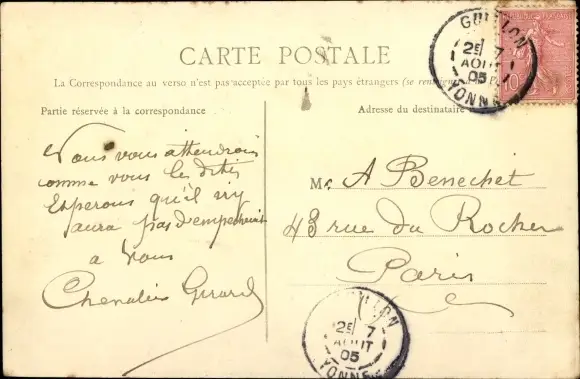 CARTE POSTALE
La Correspondance au verso n'est pas acceptée par tous les pays étrangers (se renseigner
Partie réservée à la correspondance
Adresse du destinataire
Nous vous attendrons
comme vous le dites
Esperons qu'il n'y
aura pas d'empechement
a vous
Chevalier Girard
M. A Benechet
43 rue du Rocher
Paris
GUILLON
2E 7
AOUT
05
YONNE
10
GUILLON
2E 7
AOUT
05
YONNE